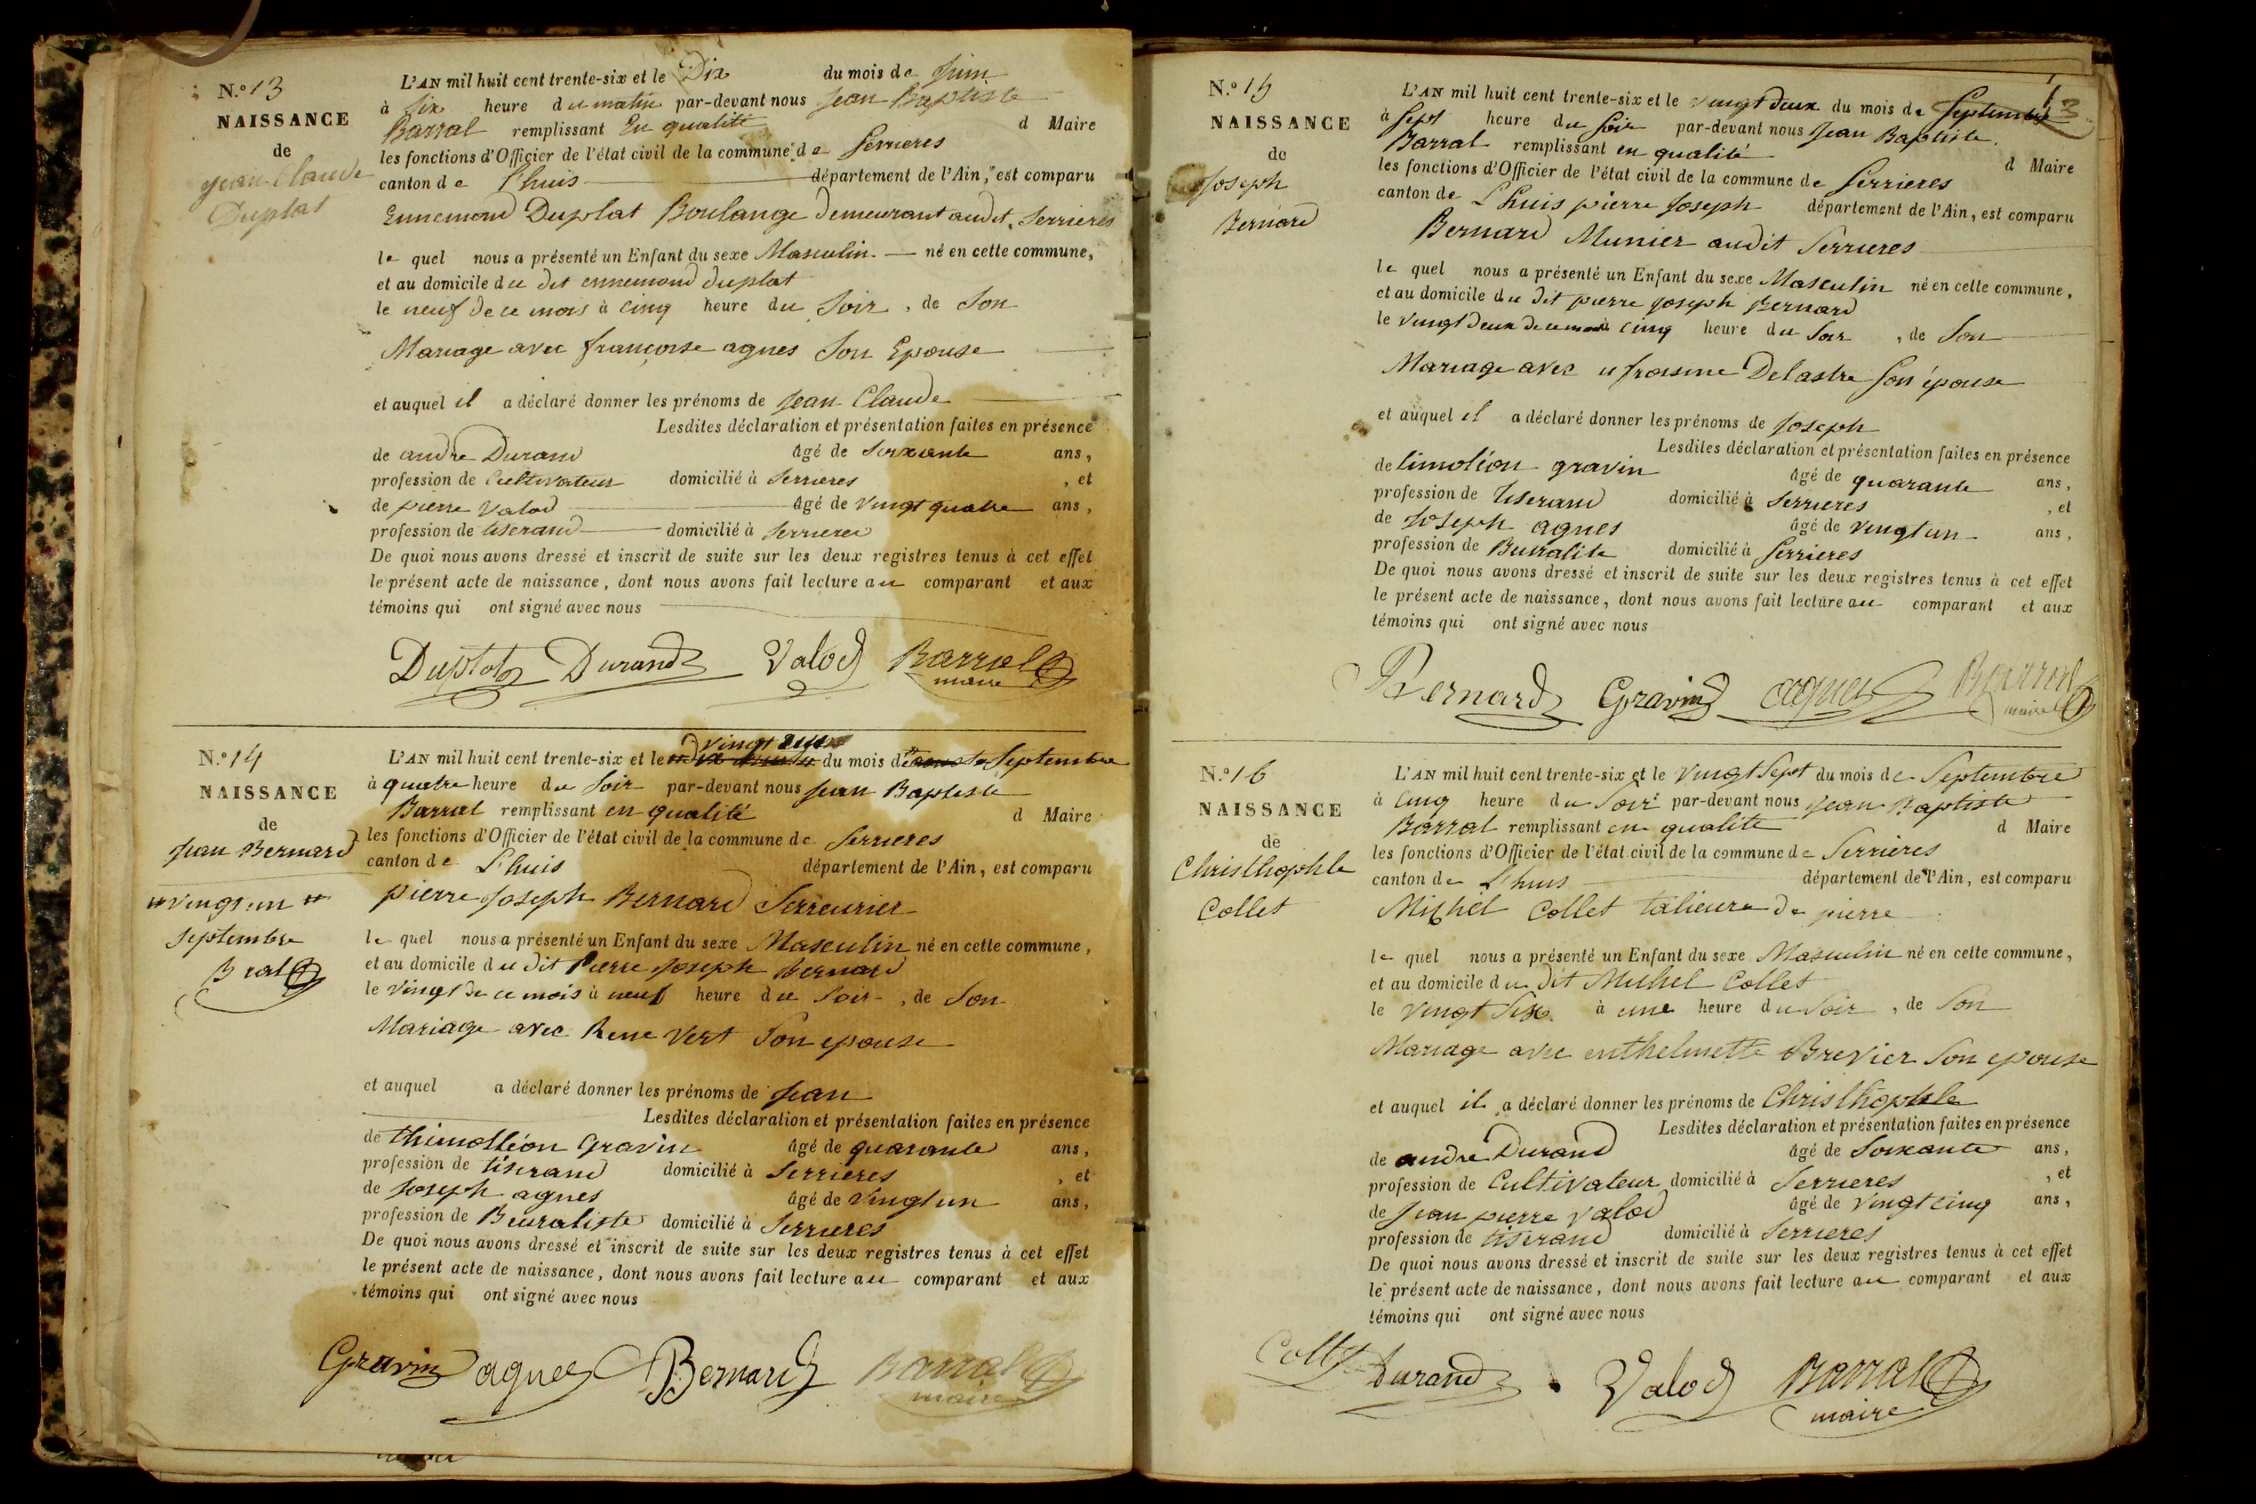 N.º 13
NAISSANCE
de
Jean Claude
Duplat
L'AN mil huit cent trente-six et le Dix du mois de Juin
à Six heure du matin par-devant nous Jean Baptiste
Barral remplissant En qualité d Maire
les fonctions d'Officier de l'état civil de la commune de Serrieres
canton de Lhuis département de l'Ain, est comparu
Ennemond Duplat Boulange demeurant audit Serrieres
le quel nous a présenté un Enfant du sexe Masculin né en cette commune,
et au domicile du dit ennemond duplat
le neuf de ce mois à cinq heure du Soir, de Son
Mariage avec françoise agnes Son Epouse
et auquel il a déclaré donner les prénoms de Jean Claude
Lesdites déclaration et présentation faites en présence
de andre Durand âgé de Soixante ans,
profession de Cultivateur domicilié à Serrieres, et
de pierre Valod âgé de vingt quatre ans,
profession de tiserand domicilié à Serrieres
De quoi nous avons dressé et inscrit de suite sur les deux registres tenus à cet effet
le présent acte de naissance, dont nous avons fait lecture au comparant et aux
témoins qui ont signé avec nous
Duplat Durand Valod Barral
maire
N.º 14
NAISSANCE
de
Jean Bernard
vingt un
septembre
B ral
vingt un
L'AN mil huit cent trente-six et le du mois de Septembre
à quatre heure du Soir par-devant nous Jean Baptiste
Barral remplissant en qualité d Maire
les fonctions d'Officier de l'état civil de la commune de Serrieres
canton de Lhuis département de l'Ain, est comparu
pierre Joseph Bernard Serreurier
le quel nous a présenté un Enfant du sexe Masculin né en cette commune,
et au domicile du dit Pierre Joseph Bernard
le vingt de ce mois à neuf heure du Soir, de Son
Mariage avec Rene Vert Son epouse
et auquel a déclaré donner les prénoms de Jean
Lesdites déclaration et présentation faites en présence
de thimolléon Gravin âgé de quarante ans,
profession de tiserand domicilié à Serrieres, et
de Joseph agnes âgé de vingt un ans,
profession de Buraliste domicilié à Serrieres
De quoi nous avons dressé et inscrit de suite sur les deux registres tenus à cet effet
le présent acte de naissance, dont nous avons fait lecture au comparant et aux
témoins qui ont signé avec nous
Gravin agnes Bernard Barral
maire
3
N.º 15
NAISSANCE
de
Joseph
Bernard
L'AN mil huit cent trente-six et le vingt deux du mois de Septembre
à Sept heure du Soir par-devant nous Jean Baptiste
Barral remplissant en qualité d Maire
les fonctions d'Officier de l'état civil de la commune de Serrieres
canton de Lhuis pierre Joseph département de l'Ain, est comparu
Bernard Munier audit Serrieres
le quel nous a présenté un Enfant du sexe Masculin né en cette commune,
et au domicile du dit pierre Joseph Bernard
le vingt deux de ce mois à cinq heure du Soir, de Son
Mariage avec ufrosine Delastre Son épouse
et auquel il a déclaré donner les prénoms de Joseph
Lesdites déclaration et présentation faites en présence
de timoléon gravin âgé de quarante ans,
profession de tiserand domicilié à Serrieres, et
de Joseph agnes âgé de vingt un ans,
profession de Buraliste domicilié à Serrieres
De quoi nous avons dressé et inscrit de suite sur les deux registres tenus à cet effet
le présent acte de naissance, dont nous avons fait lecture au comparant et aux
témoins qui ont signé avec nous
Bernard Gravin agnes Barral
maire
N.º 16
NAISSANCE
de
Christhophle
Collet
L'AN mil huit cent trente-six et le vingt Sept du mois de Septembre
à Cinq heure du Soir par-devant nous Jean Baptiste
Barral remplissant en qualité d Maire
les fonctions d'Officier de l'état civil de la commune de Serrieres
canton de Lhuis département de l'Ain, est comparu
Michel Collet talieure de pierre
le quel nous a présenté un Enfant du sexe Masculin né en cette commune,
et au domicile du dit Michel Collet
le vingt Six à une heure du Soir, de Son
Mariage avec enthelmette Brevier Son epouse
et auquel il a déclaré donner les prénoms de Christhophle
Lesdites déclaration et présentation faites en présence
de andre Durand âgé de Soixante ans,
profession de Cultivateur domicilié à Serrieres, et
de Jean pierre Valod âgé de vingt cinq ans,
profession de tiserand domicilié à Serrieres
De quoi nous avons dressé et inscrit de suite sur les deux registres tenus à cet effet
le présent acte de naissance, dont nous avons fait lecture au comparant et aux
témoins qui ont signé avec nous
Collet Durand Valod Barral
maire